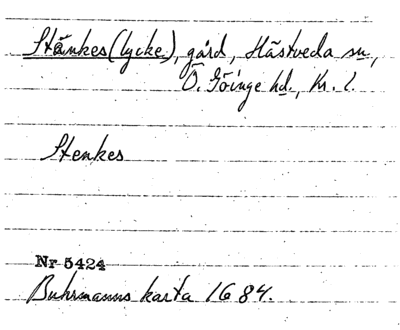 Stänkes(lycke), gård, Hästveda sn,
Ö. Göinge hd., Kr. l.
Stenkes
Nr 5424
Buhrmanns karta 1684.